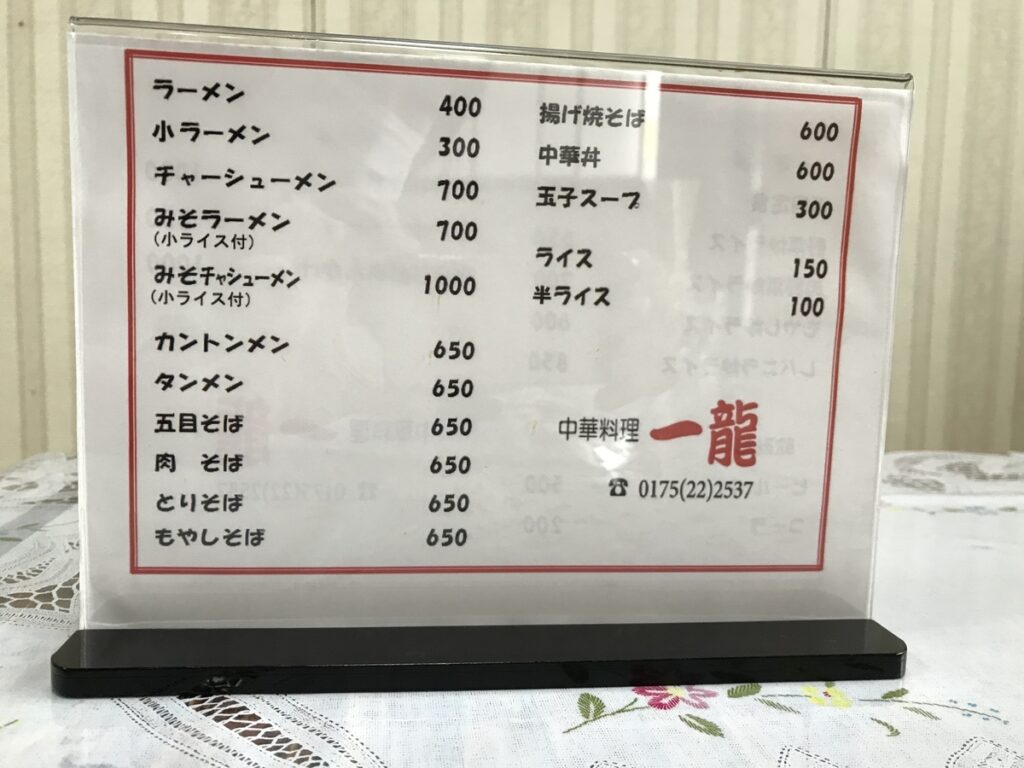 ラーメン 400
小ラーメン 300
チャーシューメン 700
みそラーメン 700
(小ライス付)
みそチャシューメン 1000
(小ライス付)
カントンメン 650
タンメン 650
五目そば 650
肉 そば 650
とりそば 650
もやしそば 650
揚げ焼そば 600
中華丼 600
玉子スープ 300
ライス 150
半ライス 100
中華料理 一龍
☎ 0175(22)2537